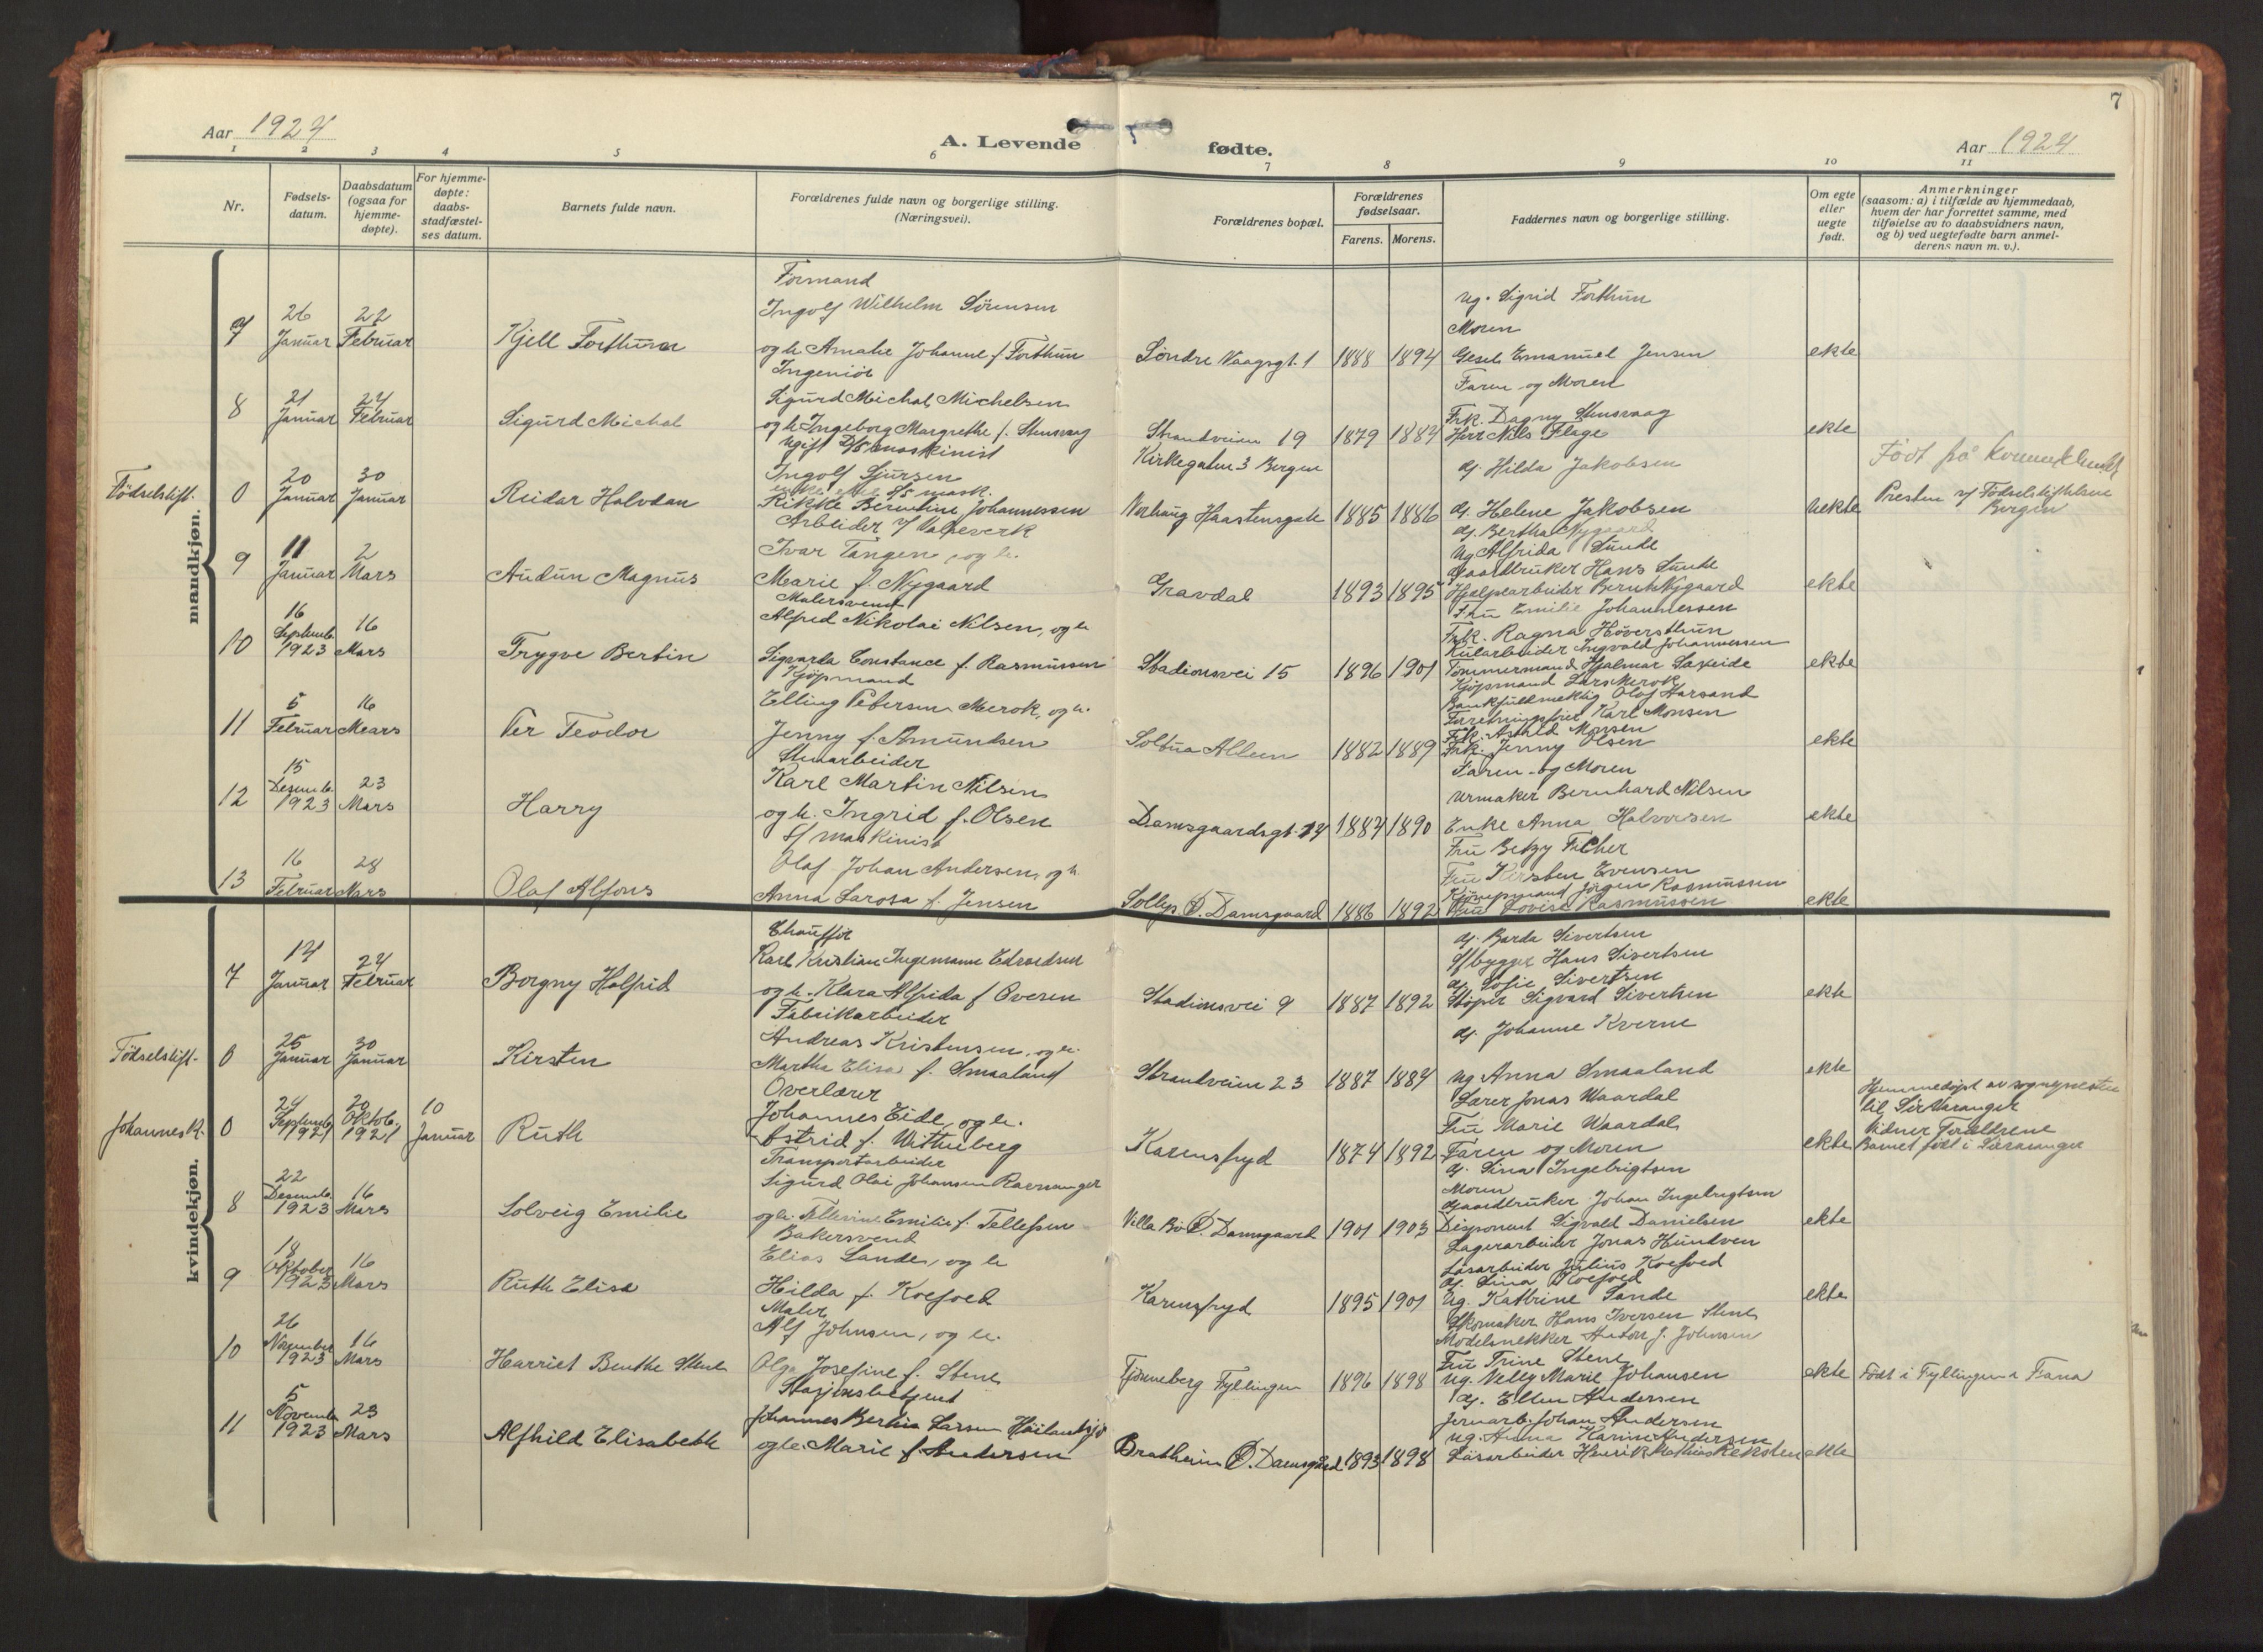 7
Aar 1924
A. Levende fødte.
Aar 1924
1 2 3 4 5 6 7 8 9 10 11
Nr.
Fødselsdatum.
Daabsdatum (ogsaa for hjemmedøpte).
For hjemmedøpte: daabsstadfæstelses datum.
Barnets fulde navn.
Forældrenes fulde navn og borgerlige stilling. (Næringsvei).
Forældrenes bopæl.
Forældrenes fødselsaar.
Farens. Morens.
Faddernes navn og borgerlige stilling.
Om egte eller uegte født.
Anmerkninger (saasom: a) i tilfælde av hjemmedaab, hvem der har forrettet samme, med tilføielse av to daabsvidners navn, og b) ved uegtefødte barn anmelderens navn m. v.).
mandkjøn.
7
26 Januar
22 Februar
Kjell Forthun
Formand
Ingolf Wilhelm Sörensen
og h. Amalie Johanne f. Forthun
Söndre Vaagsgt. 1
1888 1894
Ug. Sigrid Forthun
Moren
Gesel Emanuel Jensen
ekte
8
21 Januar
24 Februar
Sigurd Michal
Ingeniör
Sigurd Michal Michelsen
og h. Ingeborg Margrethe f. Stensvaag
Strandveien 19
1879 1884
Faren og Moren
Frk. Dagny Stensvaag
Herr Nils Flage
ekte
Födselstift.
0
20 Januar
30 Januar
Reidar Halvdan
Ugift D/S maskinist
Ingolf Sjursen
Rikke Berentine Johannessen
Kirkegaten 3 Bergen
Haastensgate
1885 1886
Gj. Hilda Jakobsen
Gj. Helene Jakobsen
uekte
Född på
Presten v/ Födselstiftelsen
Bergen
9
11 Januar
2 Mars
Audun Magnus
Arbeider v/
Ivar Tangen, og h.
Marie f. Nygaard
Gravdal
1893 1895
Gj. Bertha Nygaard
Ug Alfrida Sunde
Gaardbruker Hans Sunde
Hjelpearbeider Bernh Nygaard
ekte
10
16 Septemb. 1923
16 Mars
Trygve Bertin
Malersvend
Alfred Nikolai Nilsen, og h
Sigvarda Constance f. Rasmussen
Stadionsvei 15
1896 1901
Fru Emilie Johannessen
Frk. Ragna Höversthun
Kularbeider Ingvald Johannessen
Tömmermand Hjalmar
ekte
11
5 Februar
16 Mars
Per Teodor
Kjöpmand
Elling Petersen Merok, og h.
Jenny f. Amundsen
Solbua Alleen
1882 1889
Kjöpmand Lars Merok
Bankfuldmektig Olaf Harsand
Forretningsförer Karl Monsen
Frk. Monsen
ekte
12
15 Desemb. 1923
23 Mars
Harry
Stenarbeider
Karl Martin Nilsen
og h. Ingrid f. Olsen
Damsgaardsgt. 14
1884 1890
Frk. Jenny Olsen
Faren og Moren
Urmaker Bernhard Nilsen
Enke Anna Halvorsen
ekte
13
16 Februar
28 Mars
Olaf Alfons
S/ maskinist
Olaf Johan Andersen, og h.
Anna Larosa f. Jensen
Ö. Damsgaard
1886 1892
Fru Betzy
Fru Kirsten Evensen
Kjöpmand Jörgen Rasmussen
Fru Lovise Rasmussen
ekte
kvindekjøn.
7
14 Januar
24 Februar
Borgny Halfrid
Chaufför
Karl Kristian Ingemann Edvardsen
og h. Klara Alfrida f Overen
Stadionsvei 9
1887 1892
Gj. Barda Sivertsen
S/bygger Hans Sivertsen
Gj. Sofie Sivertsen
Stöper Sigvard Sivertsen
ekte
Födselstift.
0
25 Januar
30 Januar
Kirsten
Fabrikarbeider
Andreas Kristensen, og h.
Martha Elisa f. Smaaland
Strandveien 23
1887 1889
Gj. Johanne Kverne
Ug Anna Smaaland
ekte
Johannesk.
0
24 Septemb. 1921
20 Oktob. 1921
10 Januar
Ruth
Overlærer
Johannes Eide, og h.
Astrid f. Wittenberg
Karensfryd
1874 1892
Lærer Jonas Waardal
Fru Marie Waardal
Faren og Moren
ekte
Hjemmedöpt av sognepresten
til Sör Varanger
Vidner Foreldrene
Barnet född i
8
22 Desemb. 1923
16 Mars
Solveig Emilie
Transportarbeider
Sigurd Olai Johansen Ravnanger
og h. Emilie f. Tellefsen
Villa Bo Ö. Damsgaard
1901 1903
Gj. Lina Ingebrigtsen
Moren
Gaardbruker Johan Ingebrigtsen
Disponent Sigvald Danielsen
ekte
9
18 Oktober 1923
16 Mars
Ruth Elisa
Bakersvend
Elias Lande, og h
Hilda f. Koefoed
Karensfryd
1895 1901
Lagerarbeider Jonas Hundven
Lösarbeider Julius Koefoed
Gj. Lina Koefoed
Ug. Kathrine Sande
ekte
10
26 November 1923
16 Mars
Harriet Benthe Stene
Maler
Alf Johnsen, og h.
Olga Josefine f. Stene
Tjönneberg Fyllingen
1896 1898
Skomaker Hans Iversen Stene
Modelsnekker Anton J. Johnsen
Fru Trine Stene
Ug. Nelly Marie Johansen
ekte
Född i Fyllingen i Fana
11
5 Novemb. 1923
23 Mars
Alfhild Elisabeth
Stasjonsbetjent
Johannes Larsen
og h. Marie f. Andersen
Bratheim Ö. Damsgård
1893 1898
Gj. Ellen Andersen
Jernarb. Johan Andersen
Ug. Anna Karine Andersen
Lösarbeider Henrik Mathias Reksten
ekte